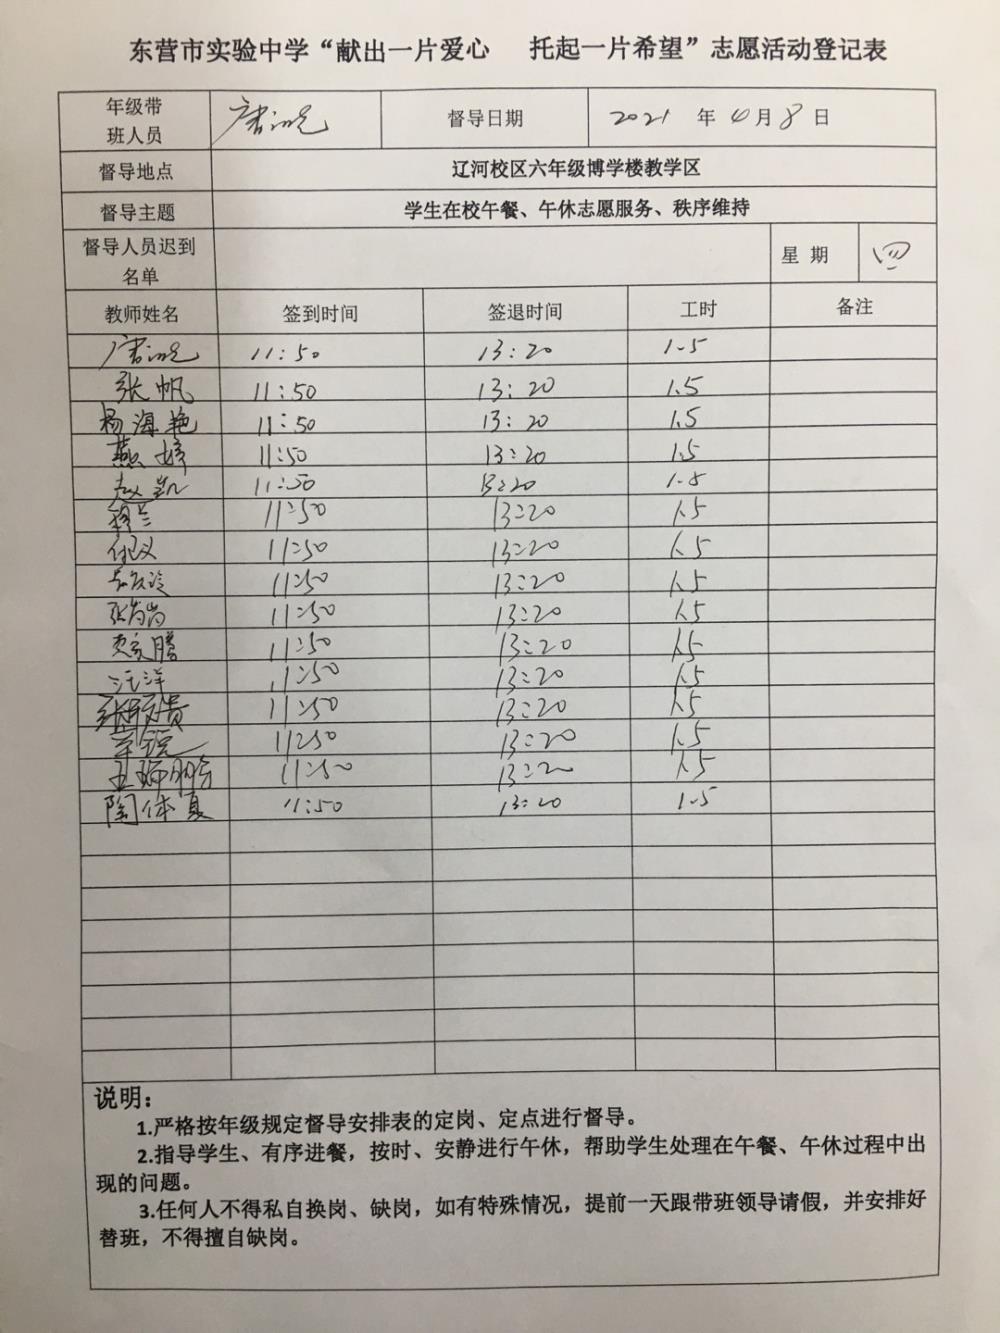 东营市实验中学“献出一片爱心 托起一片希望”志愿活动登记表
年级带班人员 督导日期 2021 年 4 月 8 日
督导地点 辽河校区六年级博学楼教学区
督导主题 学生在校午餐、午休志愿服务、秩序维持
督导人员迟到名单 星 期 四
教师姓名 签到时间 签退时间 工时 备注
11:50 13:20 1.5
张帆 11:50 13:20 1.5
杨海艳 11:50 13:20 1.5
燕婷 11:50 13:20 1.5
赵凯 11:50 13:20 1.5
11:50 13:20 1.5
11:50 13:20 1.5
11:50 13:20 1.5
张尚尚 11:50 13:20 1.5
11:50 13:20 1.5
汪洋 11:50 13:20 1.5
11:50 13:20 1.5
11:50 13:20 1.5
11:50 13:20 1.5
陶体夏 11:50 13:20 1.5
说明：
1.严格按年级规定督导安排表的定岗、定点进行督导。
2.指导学生、有序进餐，按时、安静进行午休，帮助学生处理在午餐、午休过程中出
现的问题。
3.任何人不得私自换岗、缺岗，如有特殊情况，提前一天跟带班领导请假，并安排好
替班，不得擅自缺岗。